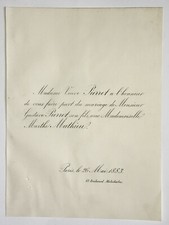 Madame Veuve Pierrot a l'honneur
de vous faire part du mariage de Monsieur
Gustave Pierrot, son fils, avec Mademoiselle
Marthe Mathieu.
Paris, le 26 Mai 1883